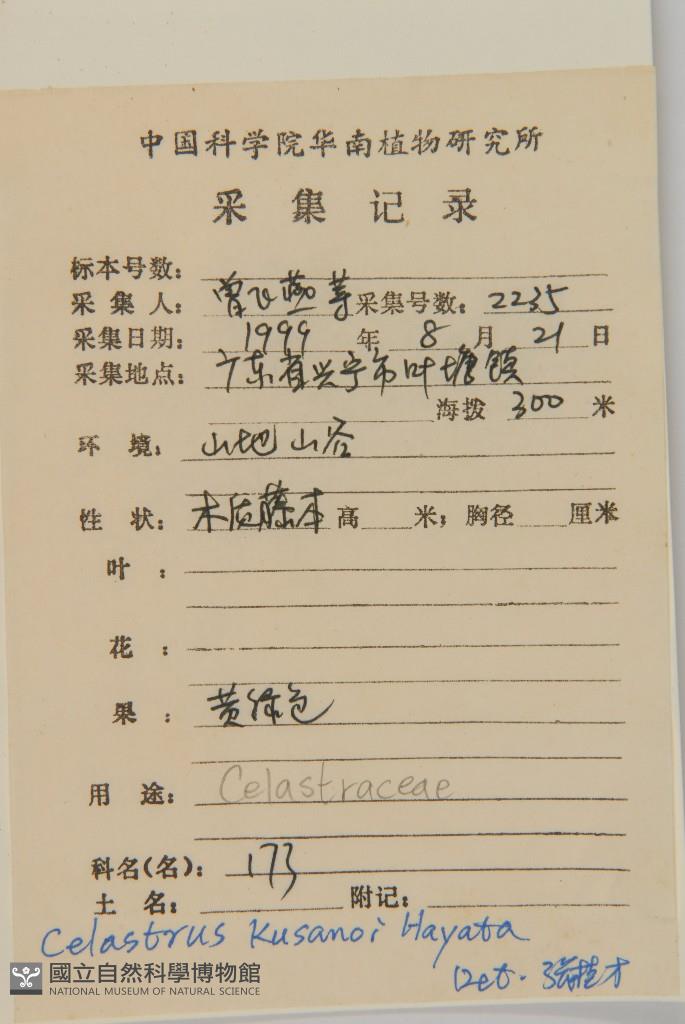 中国科学院华南植物研究所
采集记录
标本号数：
采集人：曾飞燕等 采集号数：2235
采集日期：1999年8月21日
采集地点：广东省兴宁市叶塘镇
海拨 300 米
环境：山地山谷
性状：木质藤本 高 米；胸径 厘米
叶：
花：
果：黄绿色
用途：Celastraceae
科名(名)：173
土名： 附记：
Celastrus Kusanoi Hayata
Det. 张桂才
國立自然科學博物館
NATIONAL MUSEUM OF NATURAL SCIENCE